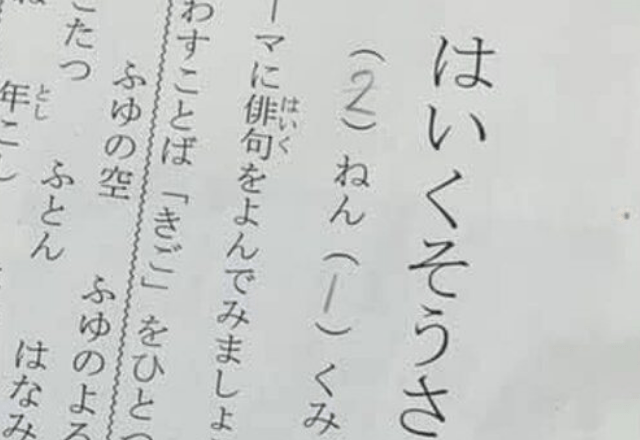 はいくそうさ
（2）ねん（1）くみ
ーマに俳句をよんでみましょ
はいく
わすことば「きご」をひとつ
ふゆの空 ふゆのよる
こたつ ふとん はなみ
年こし
とし